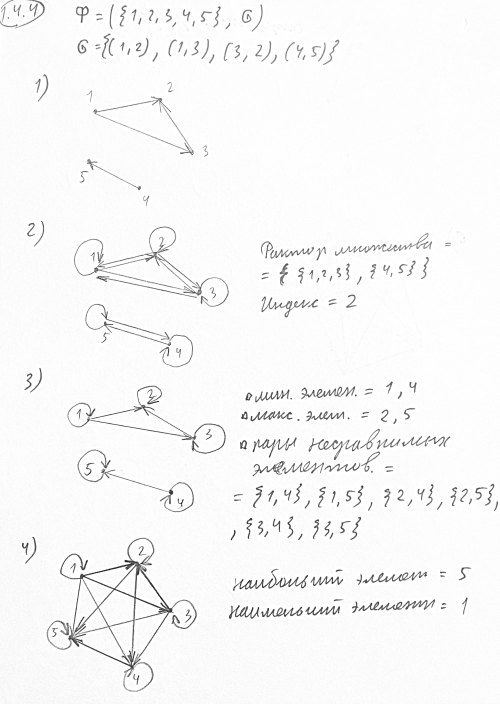 1.4.4
Φ = ({1,2,3,4,5}, G)
G={(1,2), (1,3), (3,2), (4,5)}
1)
1
2
3
5
4
2)
1
2
3
5
4
Фактор множества =
= {{1,2,3}, {4,5}}
Индекс = 2
3)
1
2
3
5
4
мин. элемен. = 1,4
макс. элем. = 2,5
пары несравнимых
элементов. =
= {1,4}, {1,5}, {2,4}, {2,5},
, {3,4}, {3,5}
4)
1
2
3
5
4
наибольший элемент = 5
наименьший элемент = 1